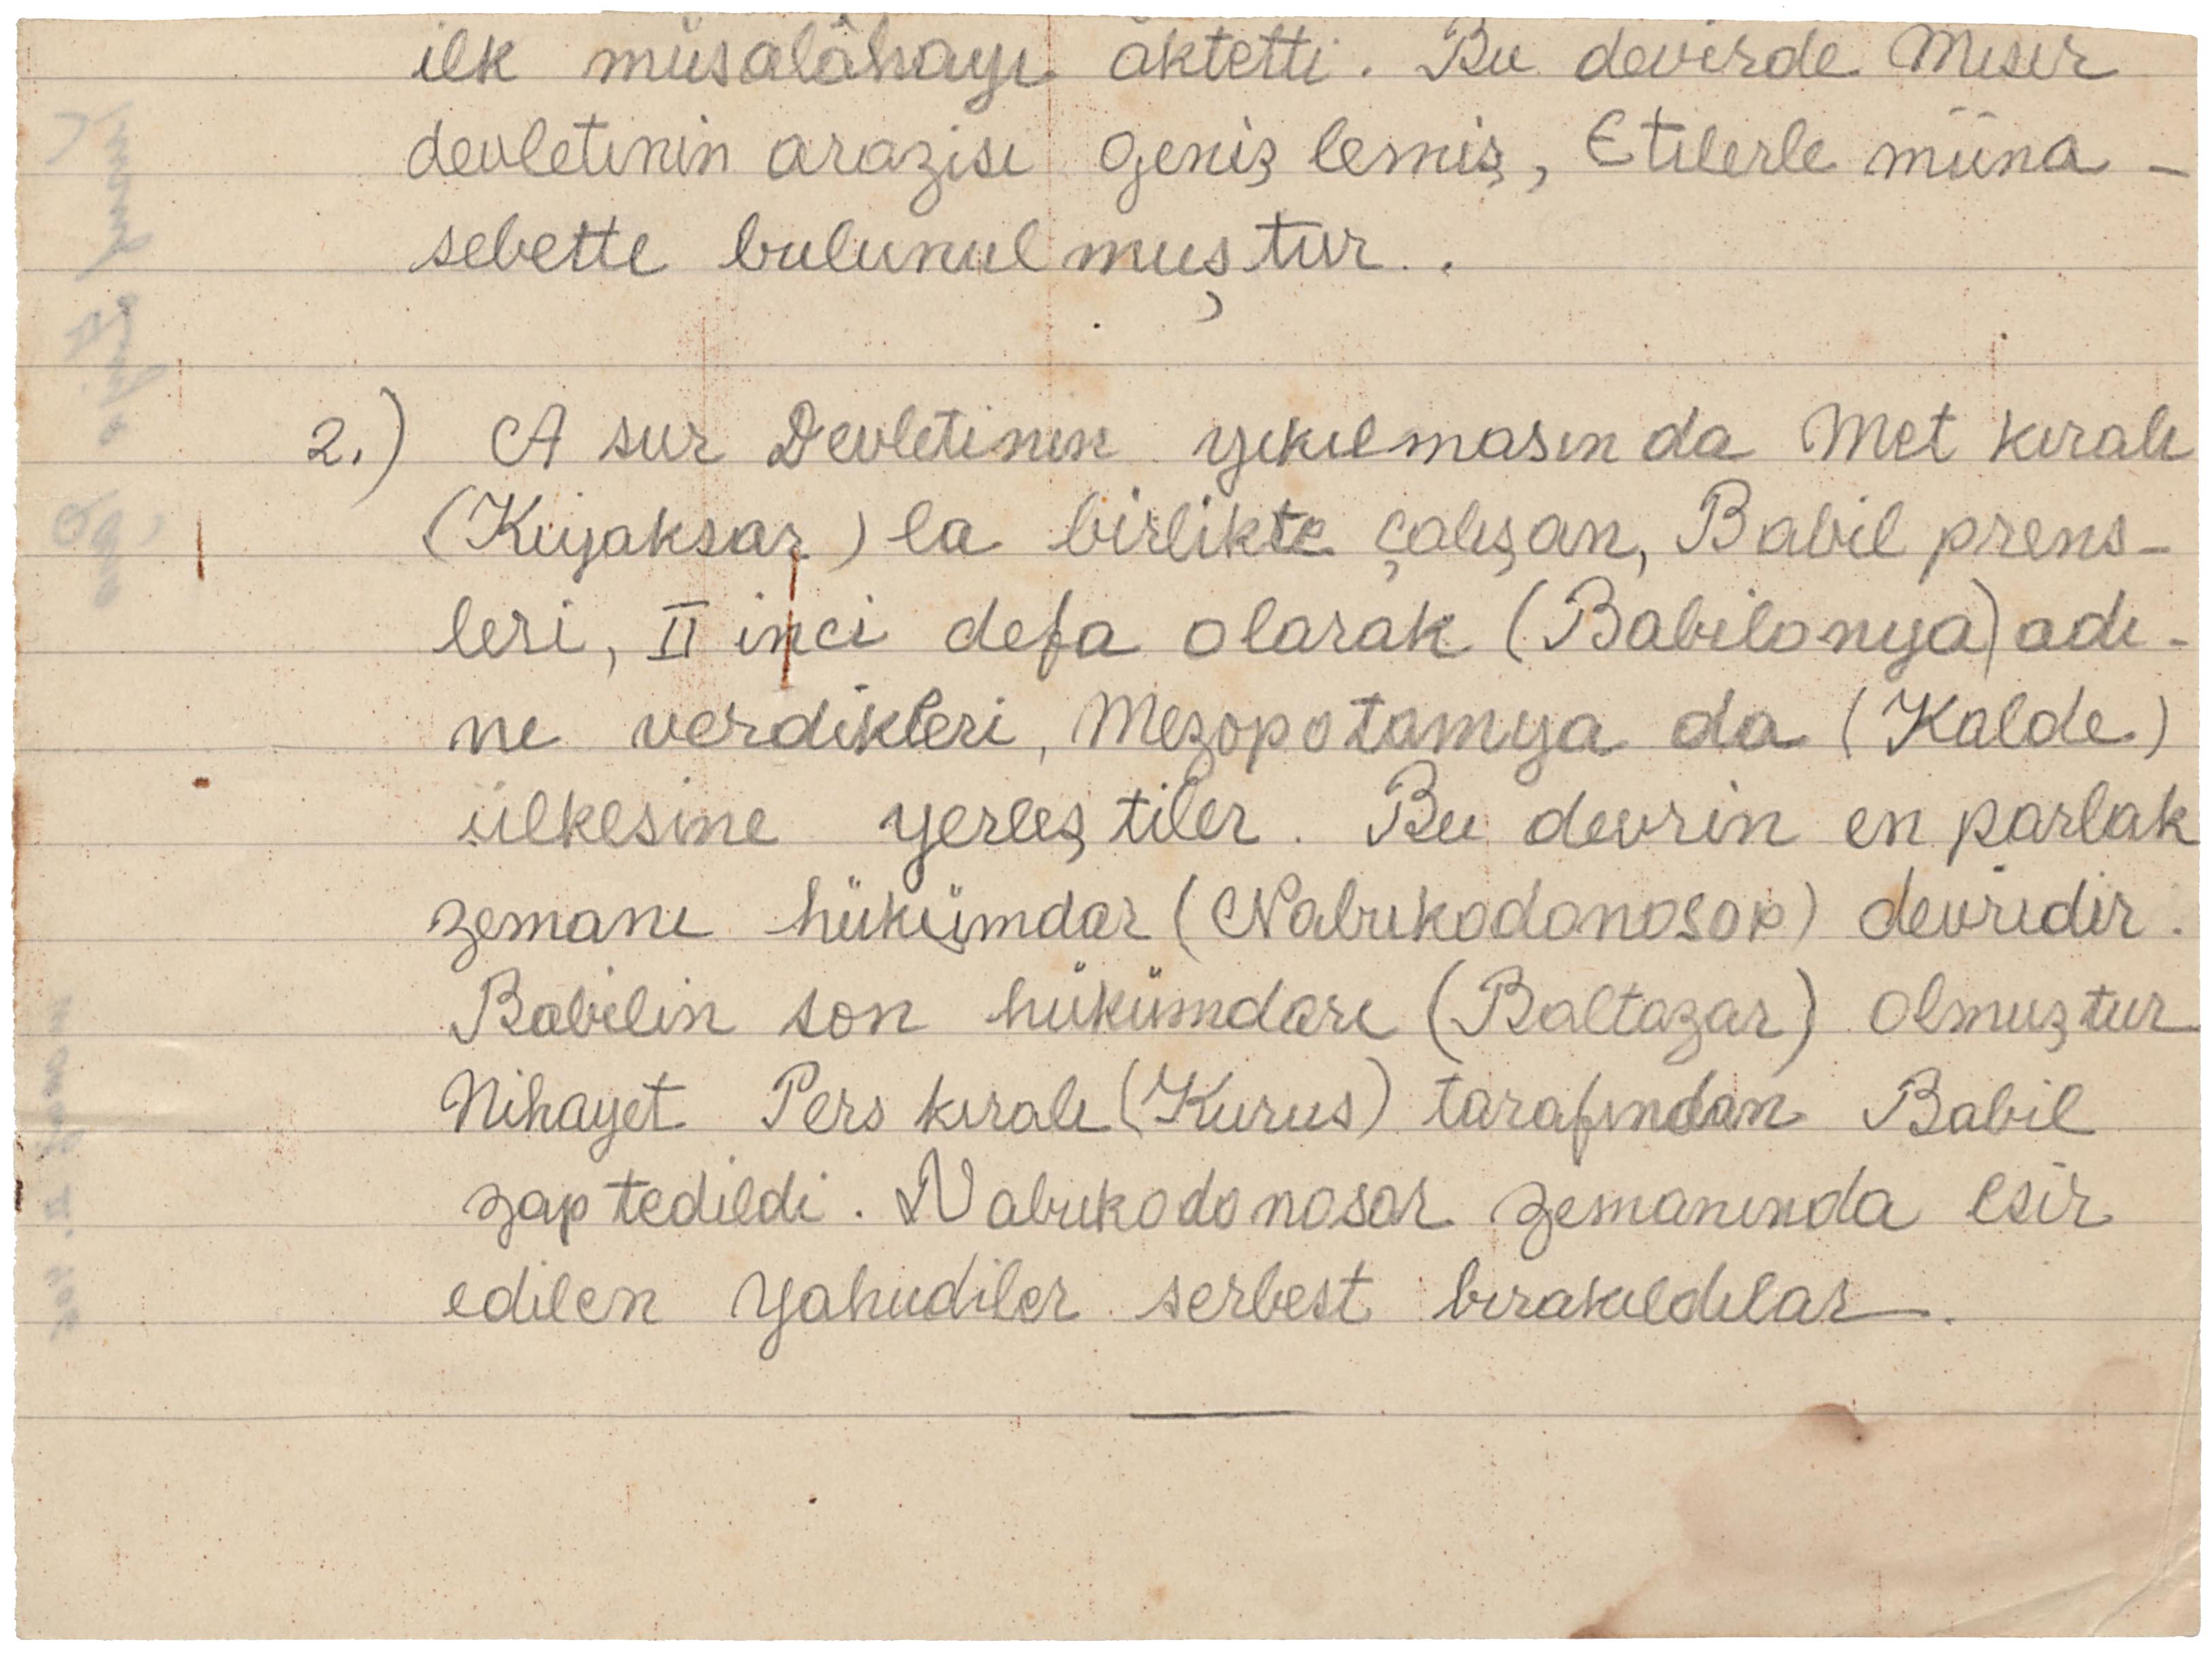 ilk müsalâhayı aktetti. Bu devirde Mısır
devletinin arazisi genişlemiş, Etilerle müna-
sebette bulunulmuştur.
2.) Asur Devletinin yıkılmasında Met kıralı
(Kiyaksar) la birlikte çalışan, Babil prens-
leri, II inci defa olarak (Babilonya) adı-
nı verdikleri, Mezopotamya da (Kalde)
ülkesine yerleştiler. Bu devrin en parlak
zemanı hükümdar (Nabukodonosor) devridir.
Babilin son hükümdarı (Baltazar) olmuştur
Nihayet Pers kıralı (Kurus) tarafından Babil
zaptedildi. Nabukodonosor zemanında esir
edilen Yahudiler serbest bırakıldılar.